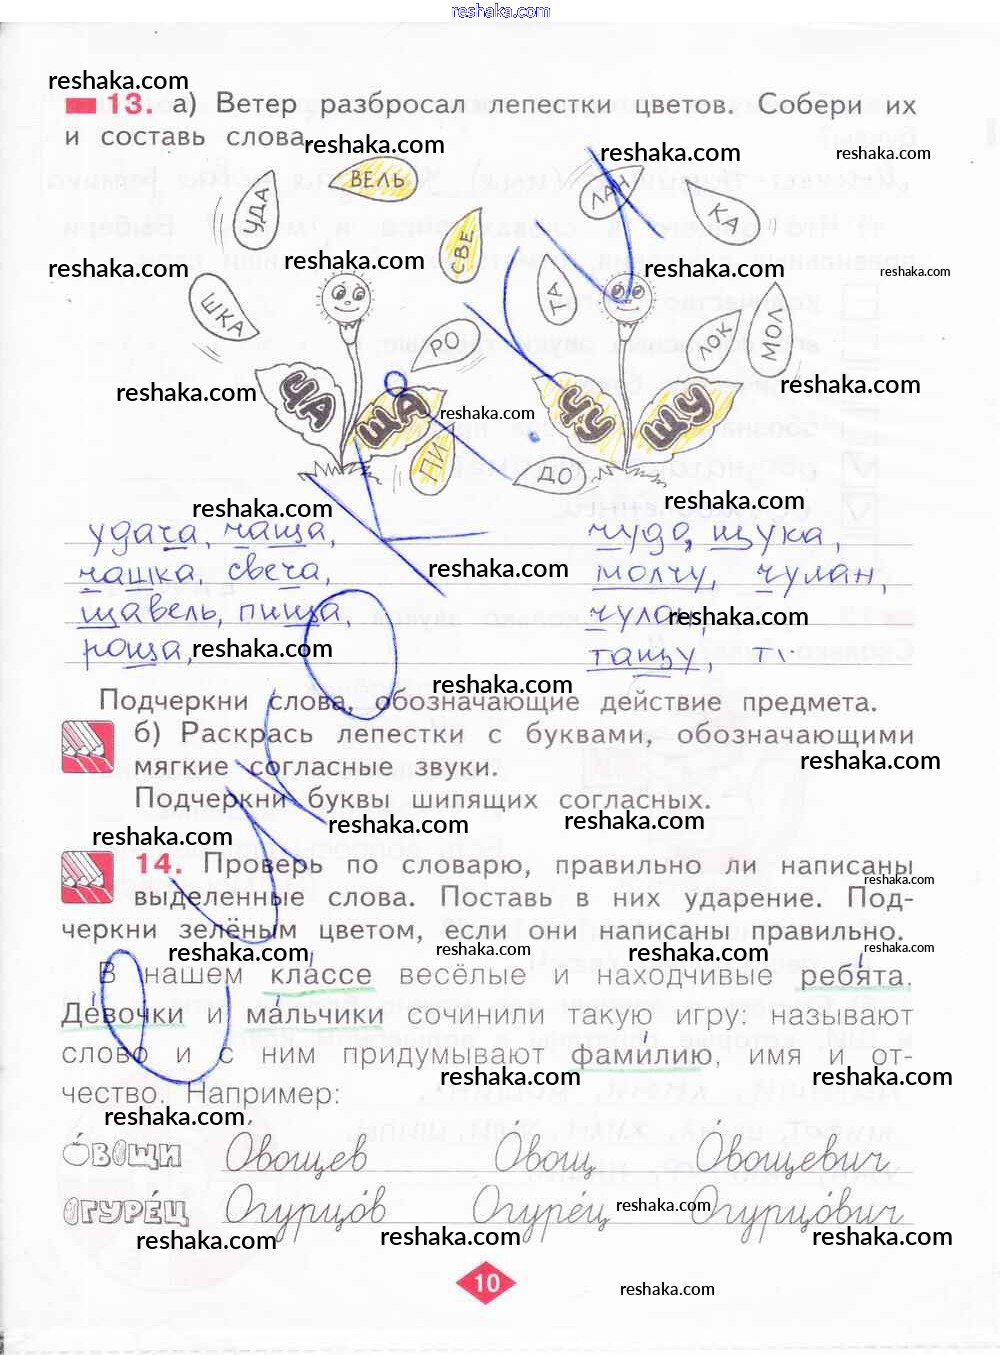 reshaka.com
reshaka.com
13. а) Ветер разбросал лепестки цветов. Собери их
и составь слова.
reshaka.com reshaka.com reshaka.com
УДА ВЕЛЬ СВЕ ЛАН КА
reshaka.com reshaka.com reshaka.com reshaka.com
ШКА РО ТА ЛОК МОЛ
reshaka.com reshaka.com reshaka.com
ЧА ЩА ПИ ЧУ ЩУ ДО
reshaka.com reshaka.com
удача, чаща, чудо, щука,
reshaka.com
чашка, свеча, молчу, чулан,
щавель, пища, чулан,
reshaka.com
роща, тащу,
reshaka.com
reshaka.com
Подчеркни слова, обозначающие действие предмета.
б) Раскрась лепестки с буквами, обозначающими
мягкие согласные звуки.
reshaka.com
Подчеркни буквы шипящих согласных.
reshaka.com reshaka.com reshaka.com
14. Проверь по словарю, правильно ли написаны
reshaka.com
выделенные слова. Поставь в них ударение. Под-
черкни зелёным цветом, если они написаны правильно.
reshaka.com reshaka.com reshaka.com reshaka.com
В нашем кла́ссе весёлые и находчивые ребя́та.
Де́вочки и ма́льчики сочинили такую игру: называют
слово и с ним придумывают фами́лию, имя и от-
reshaka.com reshaka.com
чество. Например:
reshaka.com
О́ВОЩИ О́вощев О́вощ О́вощевич
ОГУРЕ́Ц Огурцо́в Огуре́ц Огурцо́вич
reshaka.com reshaka.com reshaka.com reshaka.com
10
reshaka.com